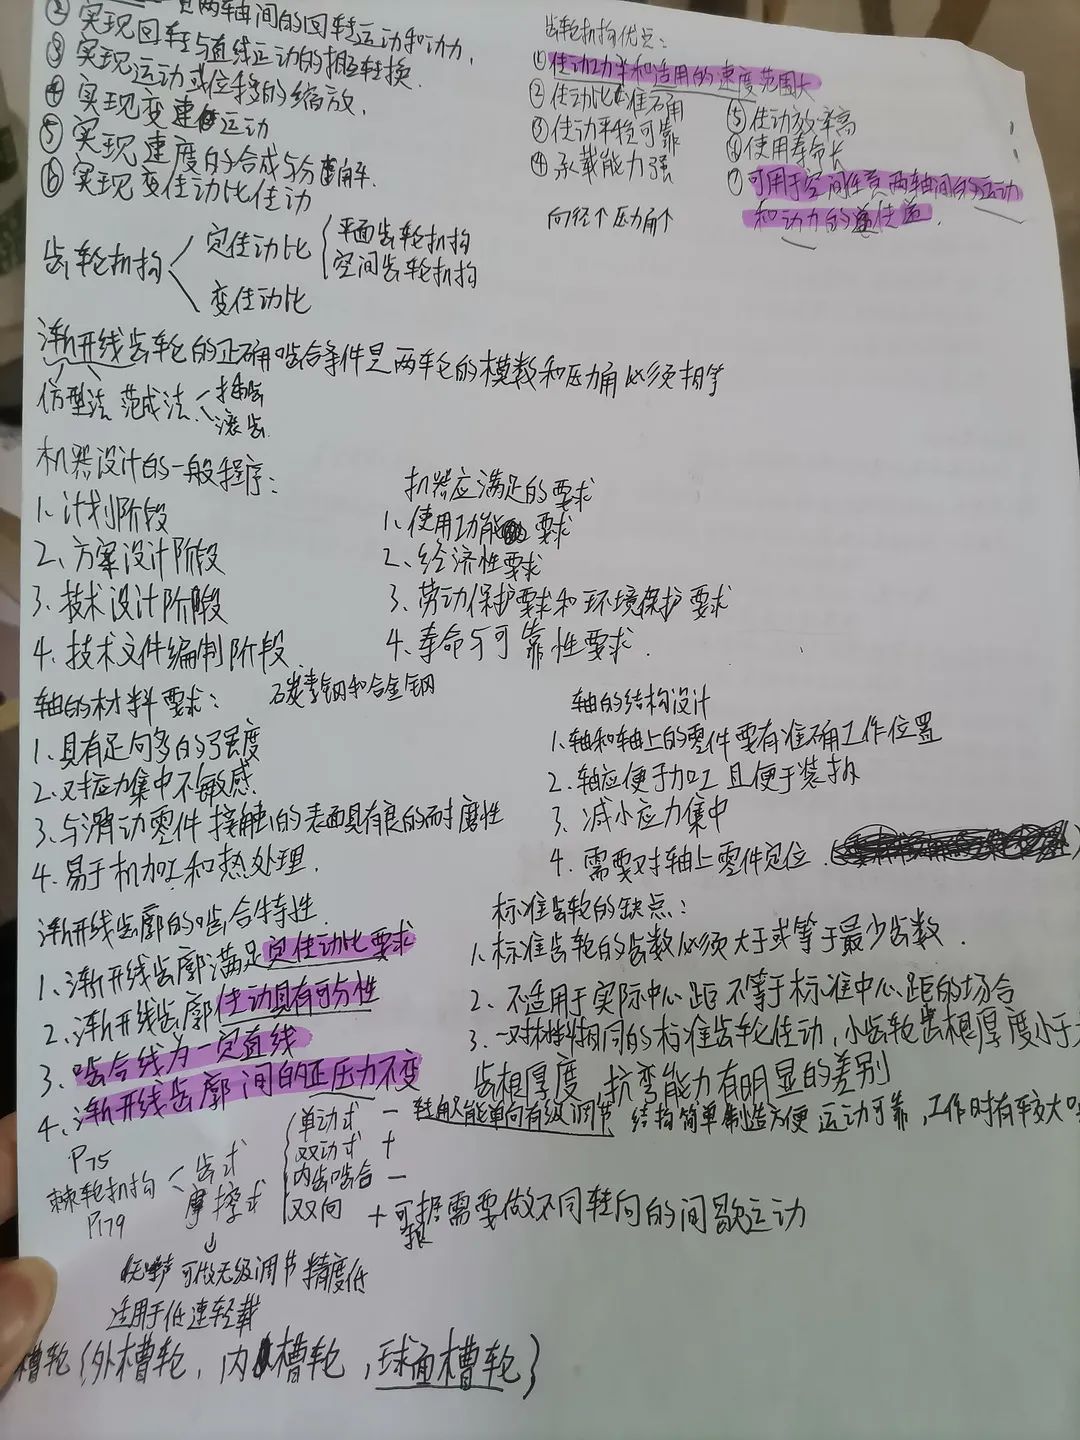 ② 实现回转与直线运动的相互转换
两轴间的回转运动和动力.
③ 实现运动或位移的缩放.
④ 实现变速运动
⑤ 实现速度的合成与分解.
⑥ 实现变传动比传动
齿轮机构优点:
① 传动功率和适用的速度范围大
② 传动比准确
③ 传动平稳可靠
④ 承载能力强
⑤ 传动效率高
⑥ 使用寿命长
⑦ 可用于空间任意两轴间的运动
和动力的传递.
向径个压力角个
齿轮机构
定传动比
平面齿轮机构
空间齿轮机构
变传动比
渐开线齿轮的正确啮合条件是两轮的模数和压力角必须相等
仿型法 范成法
插齿
滚齿
机器设计的一般程序:
1、计划阶段
2、方案设计阶段
3、技术设计阶段
4、技术文件编制阶段
机器应满足的要求
1、使用功能要求
2、经济性要求
3、劳动保护要求和环境保护要求
4、寿命与可靠性要求.
轴的材料要求: 碳素钢和合金钢
1、具有足够多的强度
2、对应力集中不敏感.
3、与滑动零件接触的表面具有良的耐磨性
4、易于机加工和热处理.
轴的结构设计
1、轴和轴上的零件要有准确工作位置
2、轴应便于加工且便于装拆
3、减小应力集中
4、需要对轴上零件定位.
渐开线齿廓的啮合特性.
1、渐开线齿廓满足定传动比要求
2、渐开线齿廓传动具有可分性
3、啮合线为一定直线
4、渐开线齿廓间的正压力不变
标准齿轮的缺点:
1、标准齿轮的齿数必须大于或等于最少齿数.
2、不适用于实际中心距不等于标准中心距的场合
3、一对材料相同的标准齿轮传动,小齿轮齿根厚度小于大
齿根厚度 抗弯能力有明显的差别
P75
棘轮机构
P179
齿式
摩擦式
单动式 -
双动式 +
内齿啮合 -
双向 + 可根据需要做不同转向的间歇运动
只能单向有级调节 结构简单制造方便 运动可靠,工作时有较大
无噪声 可做无级调节 精度低
适用于低速轻载
槽轮{外槽轮, 内槽轮, 球面槽轮}